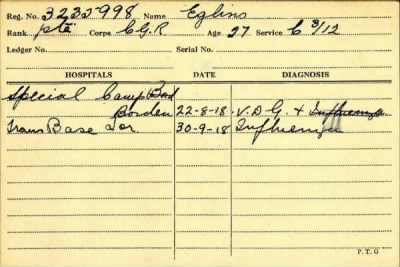 Reg. No. 3232998 Name Eglins
Rank. pte Corps C.G.R Age. 27 Service C 3/12
Ledger No. Serial No.
HOSPITALS DATE DIAGNOSIS
Special Camp Bord
Borden 22-8-18. V.D.G. + Influenza
Trans Base Tor 30-9-18. Influenza
P.T.O